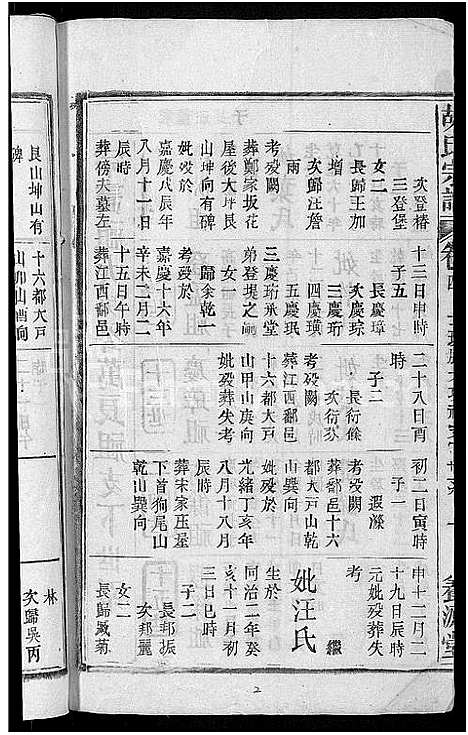 胡氏宗譜
次登椿
三登堡
女二
長歸王加
增
次歸汪詹
雨
考殁闕
葬鄭家坂花
屋後大坪艮
山坤向有碑
嘉慶戊辰年
八月十一日
辰時
葬傍夫墓左
十三日申時
子五
長慶璋
次慶琮
三慶珩
四慶璜
五慶珉
三慶珩承堂
弟登堤之嗣
女一
歸余乾一
考殁於
嘉慶十六年
辛未二月二
十五日午時
葬江西鄱邑
二十八日酉
時
子二
長衍條
次衍
考殁闕
葬江西鄱邑
十六都大戸
山甲山庚向
妣殁葬失考
初二日寅時
子一
遐滌
考殁闕
葬鄱邑十六
都大戸山乾
山巽向
妣殁於
光緒丁亥年
八月十八月
辰時
葬末家玉屋
下首狗尾山
乾山巽向
申十二月二
十九日辰時
元妣殁葬失
考
繼
妣汪氏
生於
同治二年癸
亥十一月初
三日巳時
子二
長邦振
次邦麗
女二
長歸臧菊
艮山坤山有
碑
十六都大戸
山卯山酉向
林
次歸吳丙
2